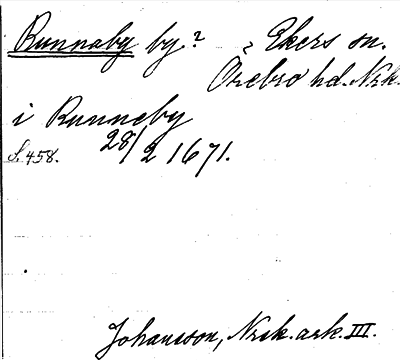 Runnaby by? ? Ekers sn.
Örebro hd. Nrk.
i Runneby
S. 458. 28/2 1671.
Johansson, Nrk. ark. III.